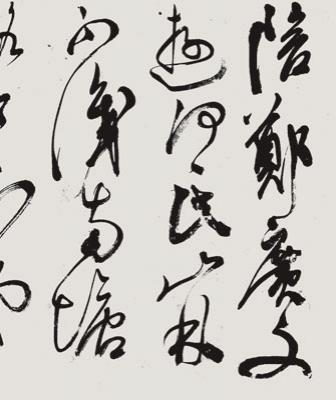 陪鄭廣文
遊何氏山林
不識南塘